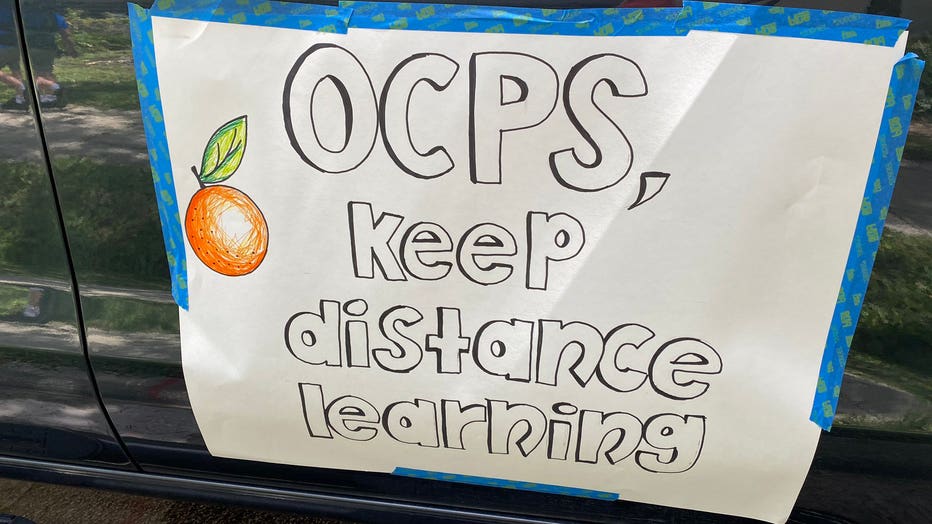 OCPS,
keep
distance
learning